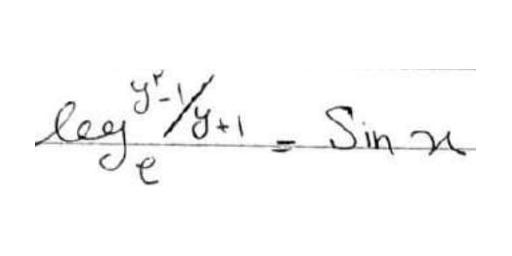 log_e^{y²-1/y+1} = Sin x